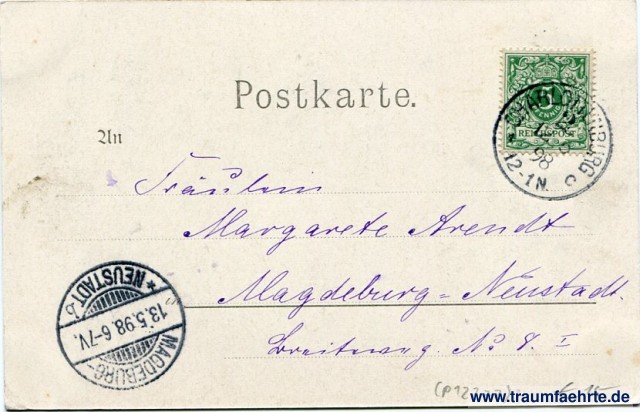 Postkarte.
REICHSPOST
CHARLOTTENBURG
98
12-1N.
An
Fräulein
Margarete Arendt
Magdeburg=Neustadt.
Breitweg. No 8. I
MAGDEBURG-
13.5.98.6-7V.
* NEUSTADT. b
www.traumfaehrte.de